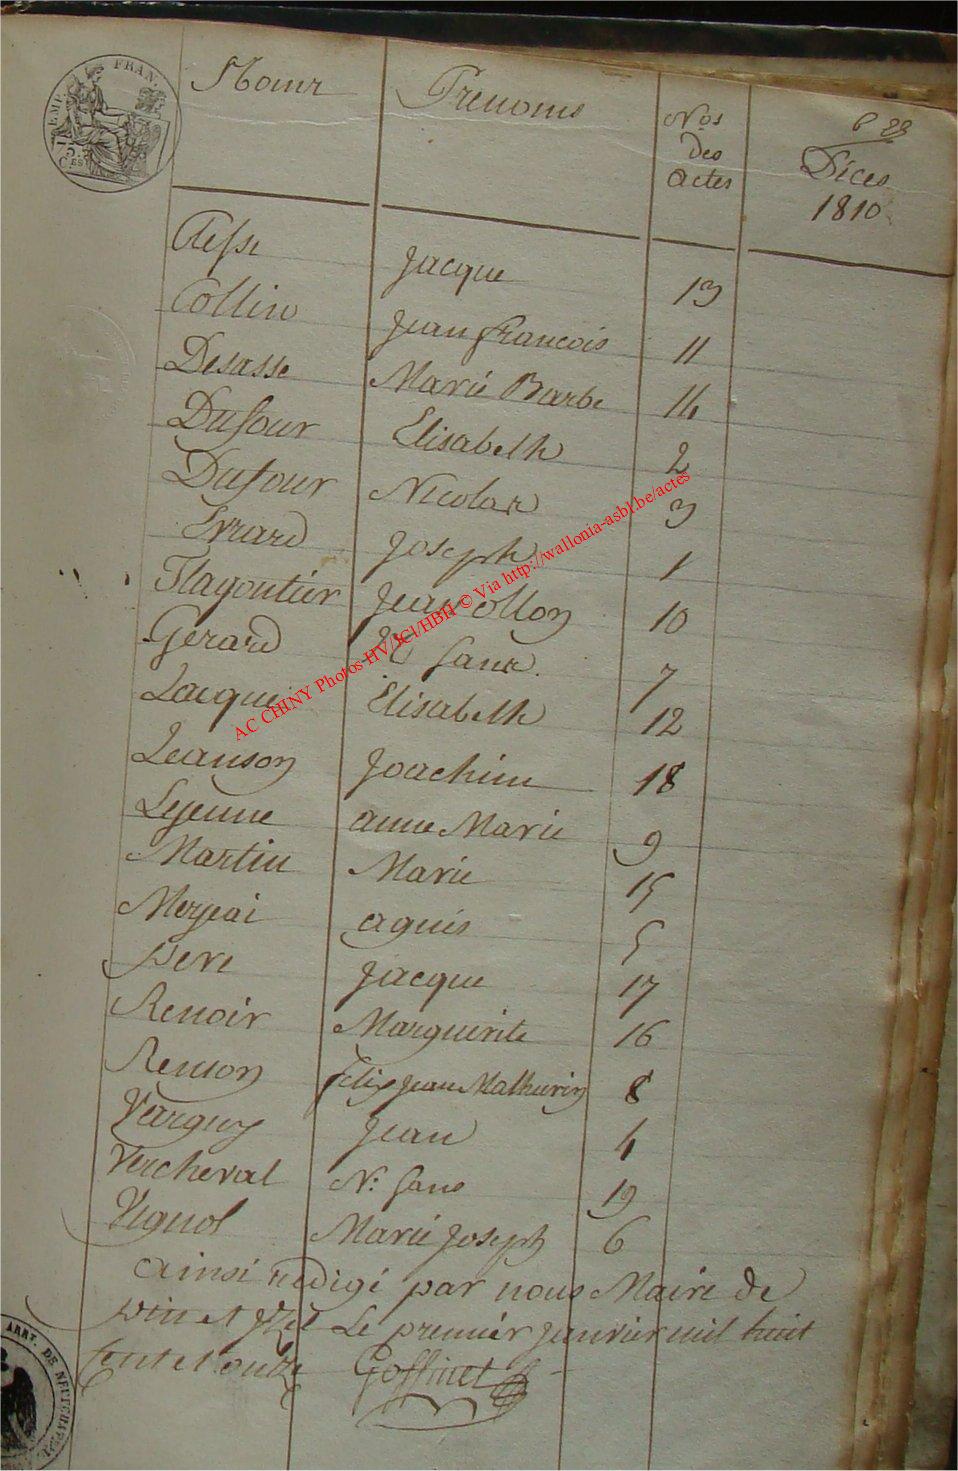 EMP. FRAN.
75 Ces
Noms Prenoms Nos des Actes
Déces
1810
Aesse Jacque 13
Collin Jean francois 11
Desasse Marie Barbe 14
Dufour Elisabeth 2
Dufour Nicolas 3
Evrard Joseph 1
Flagoutier Jean 10
Gerard N: Sans 7
Lacque Elisabeth 12
Leanson Joachim 18
Lejeune anne Marie 9
Martin Marie 15
Merjeai agnès 5
pere Jacque 17
Renoir Marguerite 16
Renson felix Jean Mathurin 8
Jean 4
Vercheval N: Sans 19
Vignol Marie Joseph 6
ainsi redigé par nous Maire de
et Izel Le premier janvier mil huit
Cent et onze Goffinet
ARRT. DE NEUFCHATEAU
AC CHINY Photos HV/JCl/HBH © Via http://wallonia-asbl.be/actes